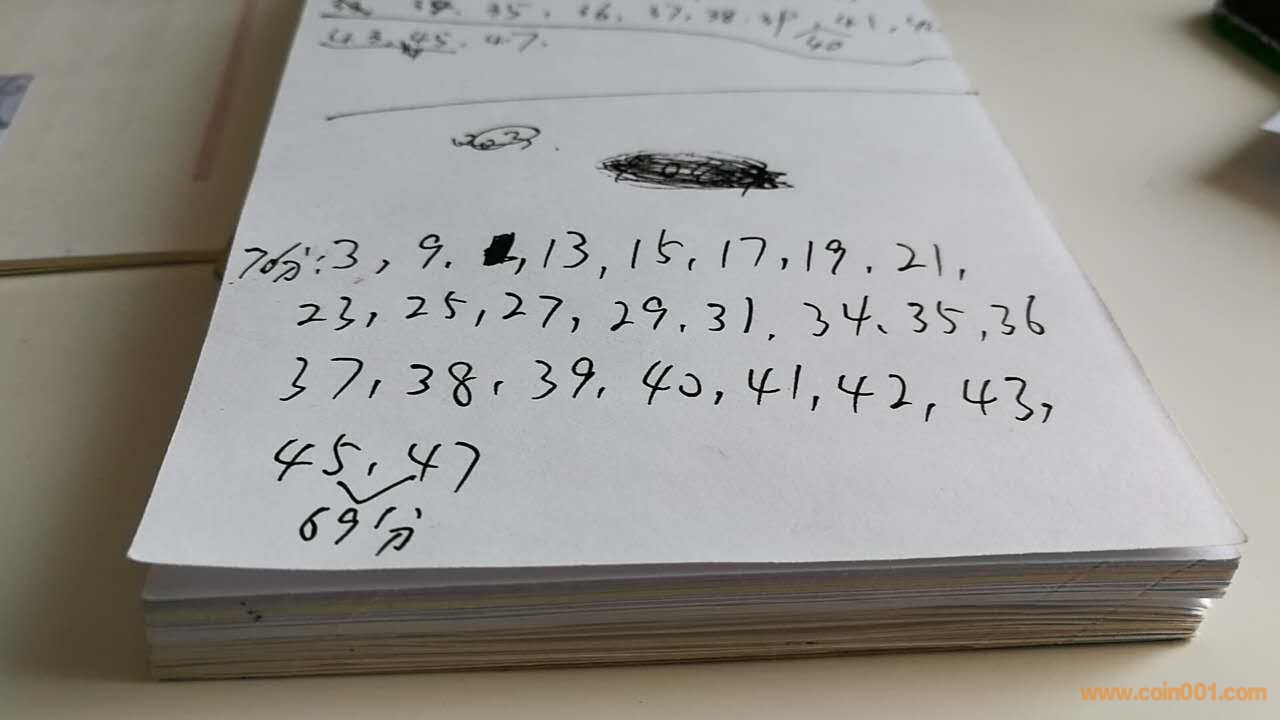 35, 36, 37, 38, 39, 41,
40
43, 45, 47.
70分:3, 9, 13, 15, 17, 19, 21,
23, 25, 27, 29, 31, 34, 35, 36
37, 38, 39, 40, 41, 42, 43,
45, 47
69分
www.coin001.com